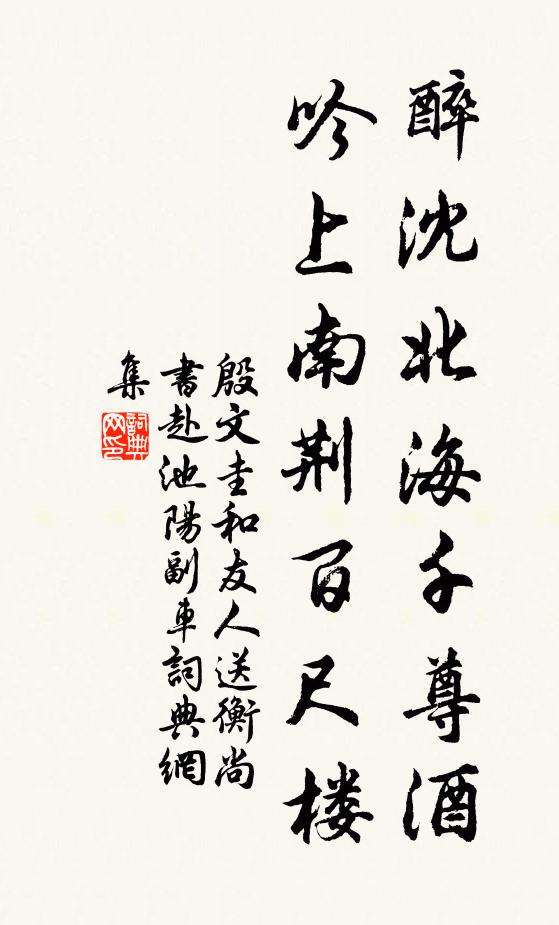 醉沈北海千尊酒
吟上南荆百尺楼
殷文圭和友人送衡尚
書赴池陽副車詞典網
集
詞典
网印